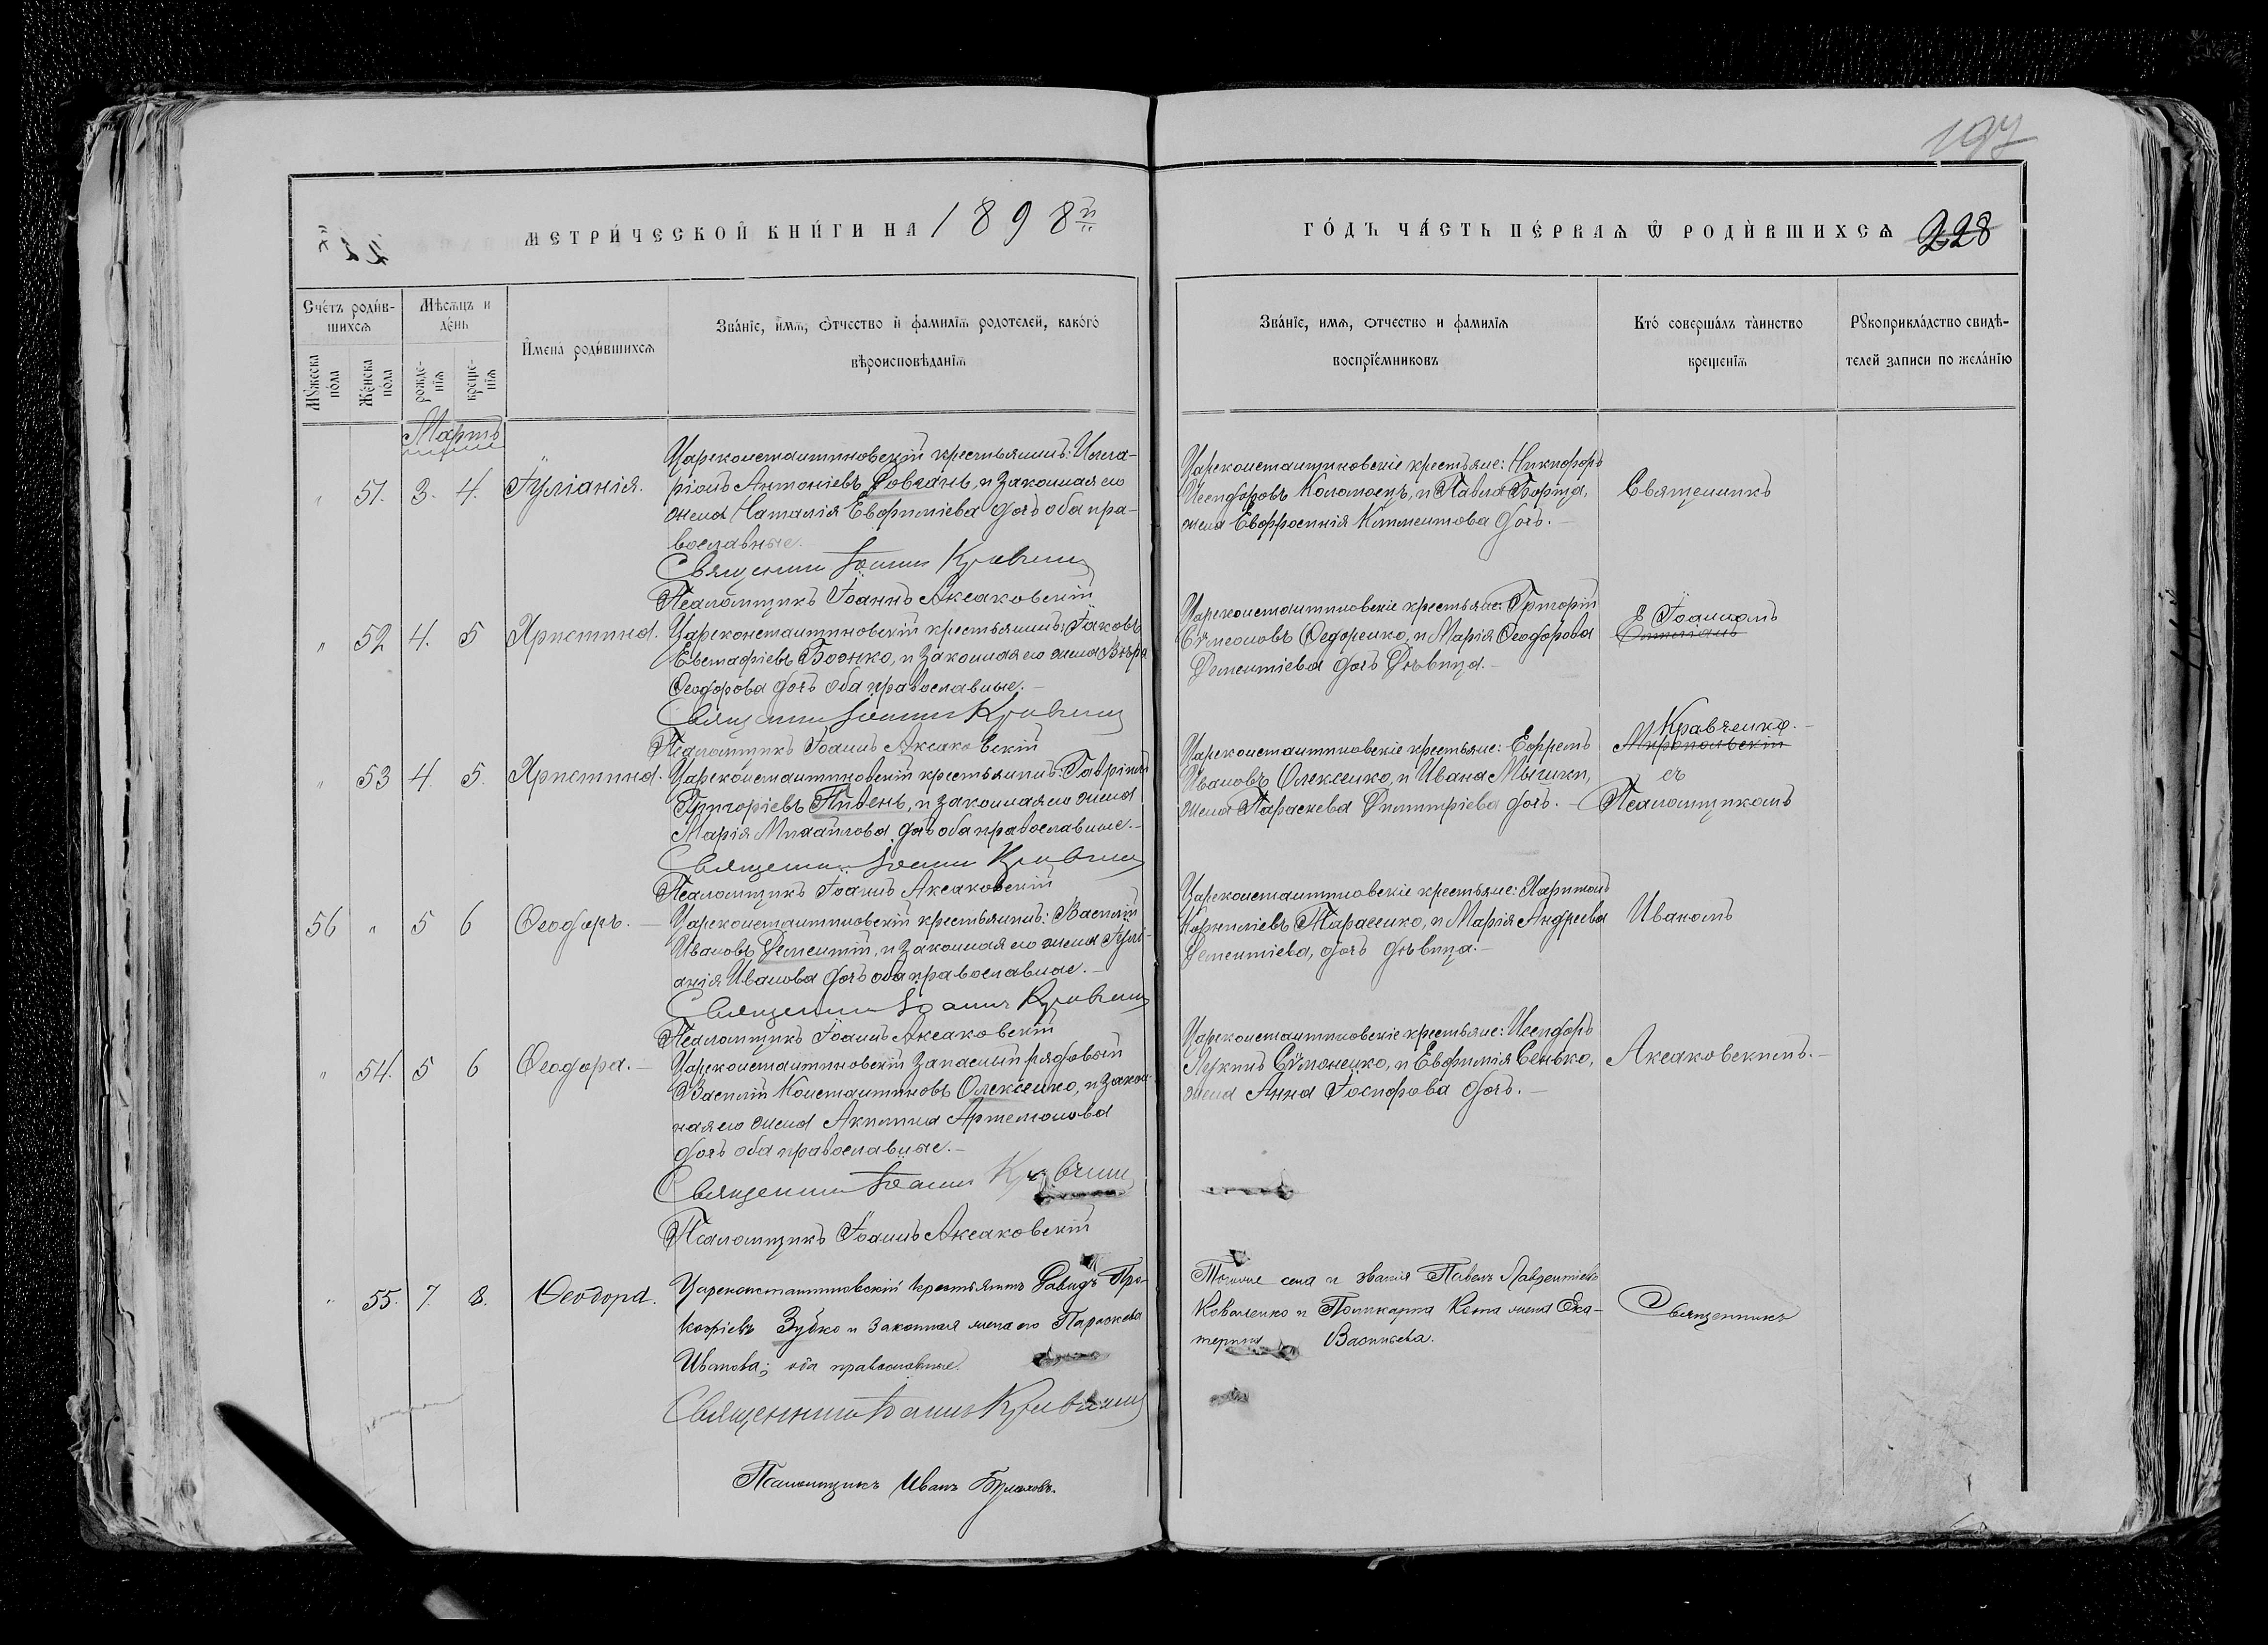 197
МЕТРИ́ЧЕСКОЙ КНИ́ГИ НА 1898й
ГО́ДЪ ЧА́СТЬ ПЕ́РВАѦ Ѿ РОДИ́ВШИХСѦ 228
Сче́тъ роди́в-
шихсѧ
Мѣсѧцъ и
де́нь
И́мена́ роди́вшихсѧ
Зва́нїе, и́мѧ, о́тчество и фамилїѧ родотелей, како́го
вѣроисповѣданїѧ
Зва́нїе, имѧ, отчество и фамилїѧ
воспрїе́мниковъ
Кто́ соверша́лъ та̀инство
крещенїѧ
Рꙋкоприкла́дство свидѣ-
телей записи по жела́нїю
Мꙋ́жеска
по́ла
Же́нска
по́ла
рожде-
нїѧ
креще-
нїѧ
Мартъ
" 51. 3. 4. Іуліанія.
Цареконстантиновскій крестьянинъ: Илла-
ріонъ Антоніевъ Довгань, и законная его
жена Наталія Евфиміева дочь оба пра-
вославные.
Священник Іоанн Кравченко
Псаломщикъ Іоаннъ Аксаковскій
Цареконстантиновскіе крестьяне: Никифоръ
Исидоровъ Коломоецъ, и Павла Борща,
жена Евфросинія Климентова дочь.
Священникъ
" 52 4. 5 Христина.
Цареконстантиновскій крестьянинъ: Іаковъ
Евстафіевъ Божко, и законная его жена Вѣра
Ѳеодорова дочь оба православные.
Священник Іоанн Кравченко
Псаломщикъ Іоаннъ Аксаковскій
Цареконстантиновскіе крестьяне: Григорій
Сѵмеоновъ Ѳедоренко, и Марія Ѳеодорова
Дементіева дочь дѣвица.
Іоанномъ
" 53 4. 5. Христина.
Цареконстантиновскій крестьянинъ: Гавріилъ
Григоріевъ Пидень, и законная его жена
Марія Михайлова дочь оба православные.
Священник Іоанн Кравченко
Псаломщикъ Іоаннъ Аксаковскій
Цареконстантиновскіе крестьяне: Ефремъ
Ивановъ Олексенко, и Ивана
жена Параскева Димитріева дочь.
Кравченко.
Миропольскій
съ
Псаломщикомъ
56 " 5 6 Ѳеодоръ.
Цареконстантиновскій крестьянинъ: Василій
Ивановъ Дементій, и законная его жена Іулі-
анія Иванова дочь оба православные.
Священник Іоанн Кравченко
Псаломщикъ Іоаннъ Аксаковскій
Цареконстантиновскіе крестьяне: Харитонъ
Корниліевъ Тарасенко, и Марія Андреева
Дементіева, дочь дѣвица.
Иваномъ
" 54. 5 6 Ѳеодора.
Цареконстантиновскій запасный рядовый
Василій Константиновъ Олексенко, и закон
ная его жена Акилина Артемонова
дочь оба православные.
Священник Іоанн Кравченко
Псаломщикъ Іоаннъ Аксаковскій
Цареконстантиновскіе крестьяне: Исидоръ
Лукинъ Сѵмоненко, и Евфимія Сенько,
жена Анна Іосифова дочь.
Аксаковскимъ.
" 55. 7. 8. Ѳеодора.
Цареконстантиновскій крестьянинъ Давидъ Про-
кофіевъ Зубко и законная жена его Параскева
Иванова; оба православные.
Священник Іоанн Кравченко
Псаломщикъ Иванъ
Того же села и званія Павелъ Лаврентіевъ
Коваленко и Поликарпа жена Ека-
терина Васильева.
Священникъ